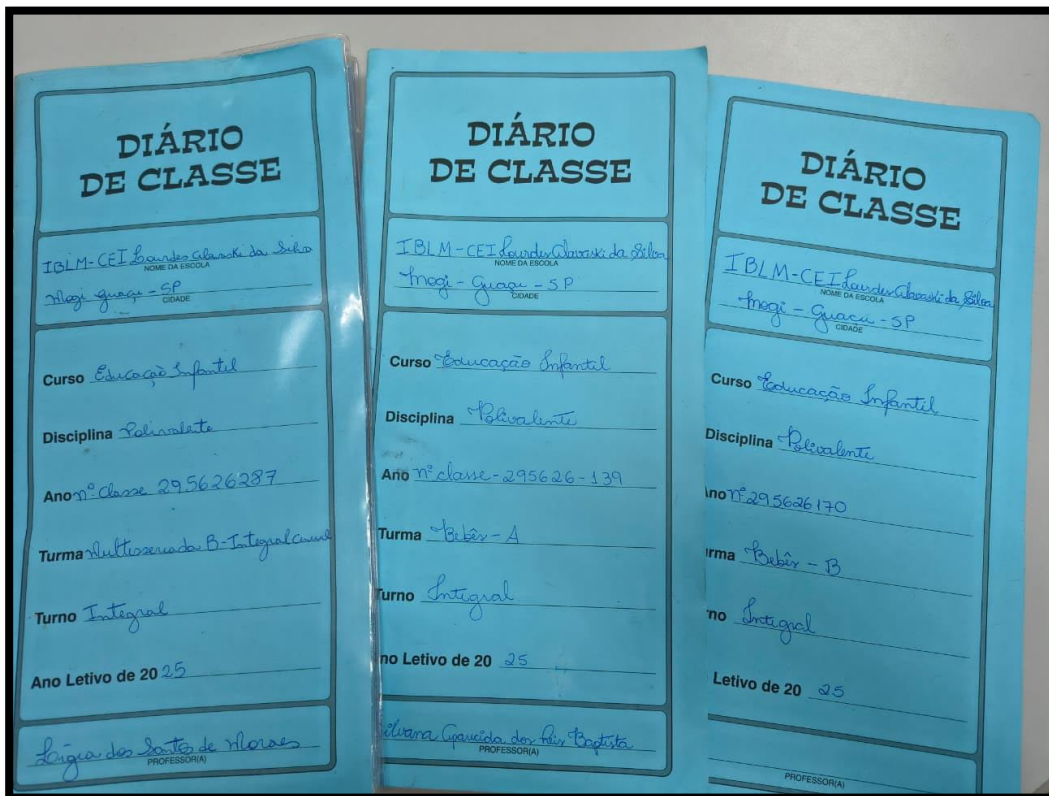 DIÁRIO
DE CLASSE
IBLM-CEI Lourdes da Silva
NOME DA ESCOLA
Mogi Guaçu - SP
CIDADE
Curso Educação Infantil
Disciplina Polivalente
Ano nº Classe 295626287
Turma Multisseriada B-Integral
Turno Integral
Ano Letivo de 20 25
Lígia dos Santos de Moraes
PROFESSOR(A)
DIÁRIO
DE CLASSE
IBLM-CEI Lourdes da Silva
NOME DA ESCOLA
Mogi - Guaçu - SP
CIDADE
Curso Educação Infantil
Disciplina Polivalente
Ano nº classe - 295626-139
Turma Bebês - A
Turno Integral
no Letivo de 20 25
Silvana Aparecida dos Reis Baptista
PROFESSOR(A)
DIÁRIO
DE CLASSE
IBLM-CEI Lourdes da Silva
NOME DA ESCOLA
Mogi - Guaçu - SP
CIDADE
Curso Educação Infantil
Disciplina Polivalente
no nº 295626170
rma Bebês - B
no Integral
Letivo de 20 25
PROFESSOR(A)